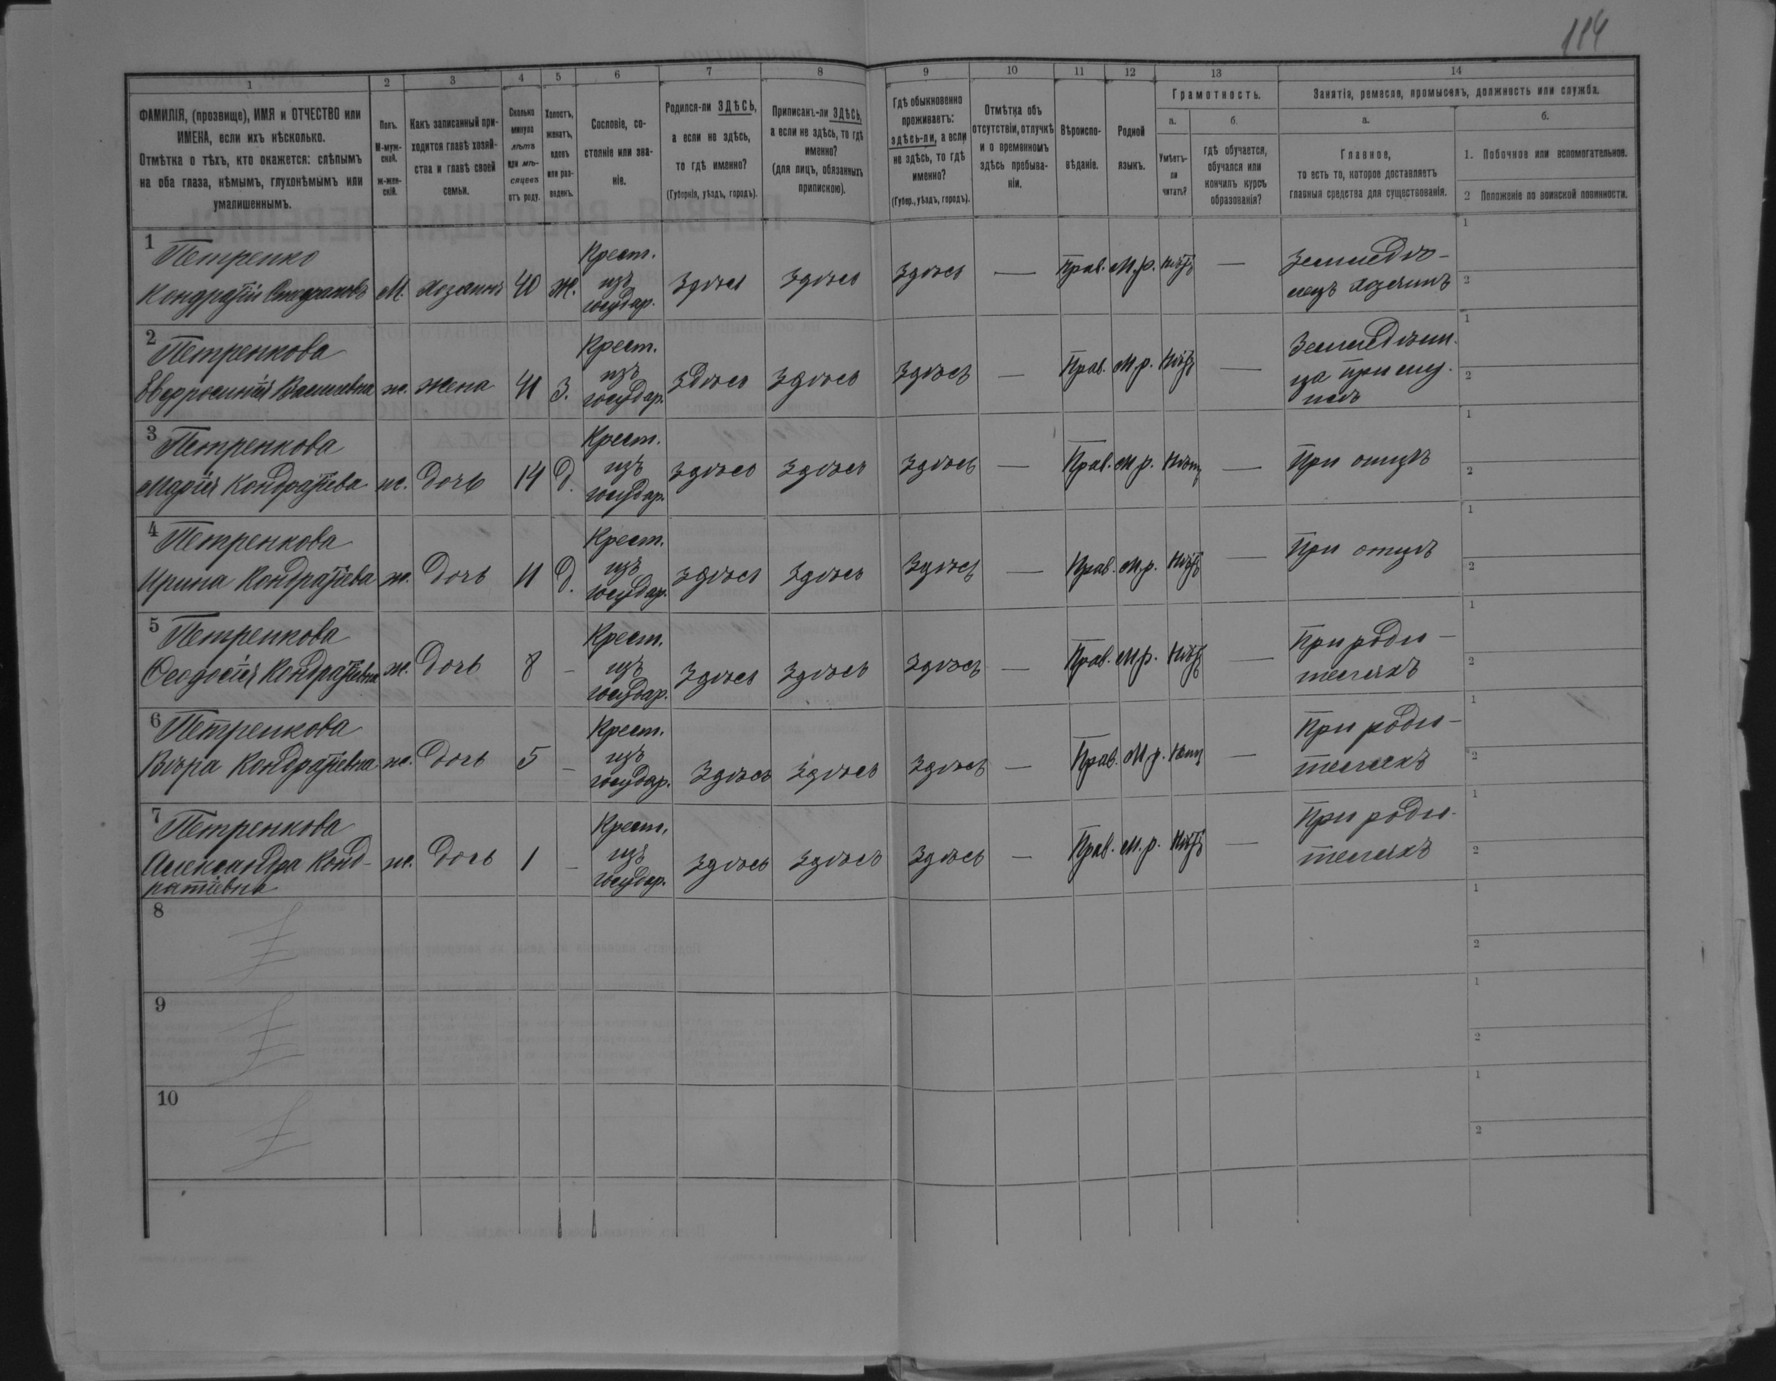 114
1
2
3
4
5
6
7
8
9
10
11
12
13
14
ФАМИЛІЯ, (прозвище), ИМЯ и ОТЧЕСТВО или
ИМЕНА, если ихъ нѣсколько.
Отмѣтка о тѣхъ, кто окажется: слѣпымъ
на оба глаза, нѣмымъ, глухонѣмымъ или
умалишеннымъ.
Полъ.
М-муж-
ской.
ж-жен-
скій.
Какъ записанный при-
ходится главѣ хозяй-
ства и главѣ своей
семьи.
Сколько
минуло
лѣтъ
или мѣ-
сяцевъ
отъ роду.
Холостъ,
женатъ,
вдовъ
или раз-
веденъ.
Сословіе, со-
стояніе или зва-
ніе.
Родился-ли ЗДѢСЬ,
а если не здѣсь,
то гдѣ именно?
(Губернія, уѣздъ, городъ).
Приписанъ-ли ЗДѢСЬ,
а если не здѣсь, то гдѣ
именно?
(для лицъ, обязанныхъ
припискою).
Гдѣ обыкновенно
проживаетъ:
здѣсь-ли, а если
не здѣсь, то гдѣ
именно?
(Губер., уѣздъ, городъ).
Отмѣтка объ
отсутствіи, отлучкѣ
и о временномъ
здѣсь пребыва-
ніи.
Вѣроиспо-
вѣданіе.
Родной
языкъ.
Грамотность.
а.
Умѣетъ-
ли
читать?
б.
гдѣ обучается,
обучался или
кончилъ курсъ
образованія?
Занятія, ремесло, промыселъ, должность или служба.
а.
Главное,
то есть то, которое доставляетъ
главныя средства для существованія.
б.
1. Побочное или вспомогательное.
2 Положеніе по воинской повинности.
1 Петренко
Кондратій М. хозяинъ 40 ж. Крест. изъ государ. Здѣсь Здѣсь Здѣсь — Прав. М.р. Нѣтъ — Земледѣ-
лецъ хозяинъ
1
2
2 Петренкова
Евфросинія Васильевна ж. жена 41 З. Крест. изъ государ. Здѣсь Здѣсь Здѣсь — Прав. М.р. Нѣтъ —
ца при
1
2
3 Петренкова
Марія Кондратьева ж. Дочь 14 Д. Крест. изъ государ. Здѣсь Здѣсь Здѣсь — Прав. М.р. Нѣтъ — При отцѣ
1
2
4 Петренкова
Ирина Кондратьева ж. Дочь 11 Д. Крест. изъ государ. Здѣсь Здѣсь Здѣсь — Прав. М.р. Нѣтъ — При отцѣ
1
2
5 Петренкова
Ѳеодосія Кондратьевна ж. Дочь 8 – Крест. изъ государ. Здѣсь Здѣсь Здѣсь — Прав. М.р. Нѣтъ — При роди-
теляхъ
1
2
6 Петренкова
Вѣра Кондратьевна ж. Дочь 5 – Крест. изъ государ. Здѣсь Здѣсь Здѣсь — Прав. М.р. Нѣтъ — При роди-
теляхъ
1
2
7 Петренкова
Александра Конд-
ратіевна ж. Дочь 1 – Крест. изъ государ. Здѣсь Здѣсь Здѣсь — Прав. М.р. Нѣтъ — При роди-
теляхъ
1
2
8
1
2
9
1
2
10
1
2